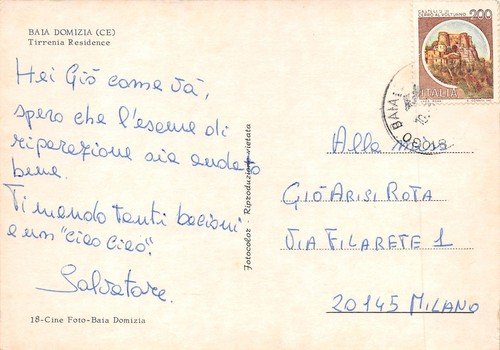 BAIA DOMIZIA (CE)
Tirrenia Residence
Hei Giò come va,
spero che l'esame di
riparazione sia andato
bene.
Ti mando tanti bacioni
e un "ciao ciao".
Salvatore.
18-Cine Foto-Baia Domizia
Fotocolor - Riproduzione vietata
200
CASTELLO DI
CERRO AL VOLTURNO
ITALIA
BAIA
Alla
GIÒ ARISI ROTA
VIA FILARETE 1
20145 MILANO